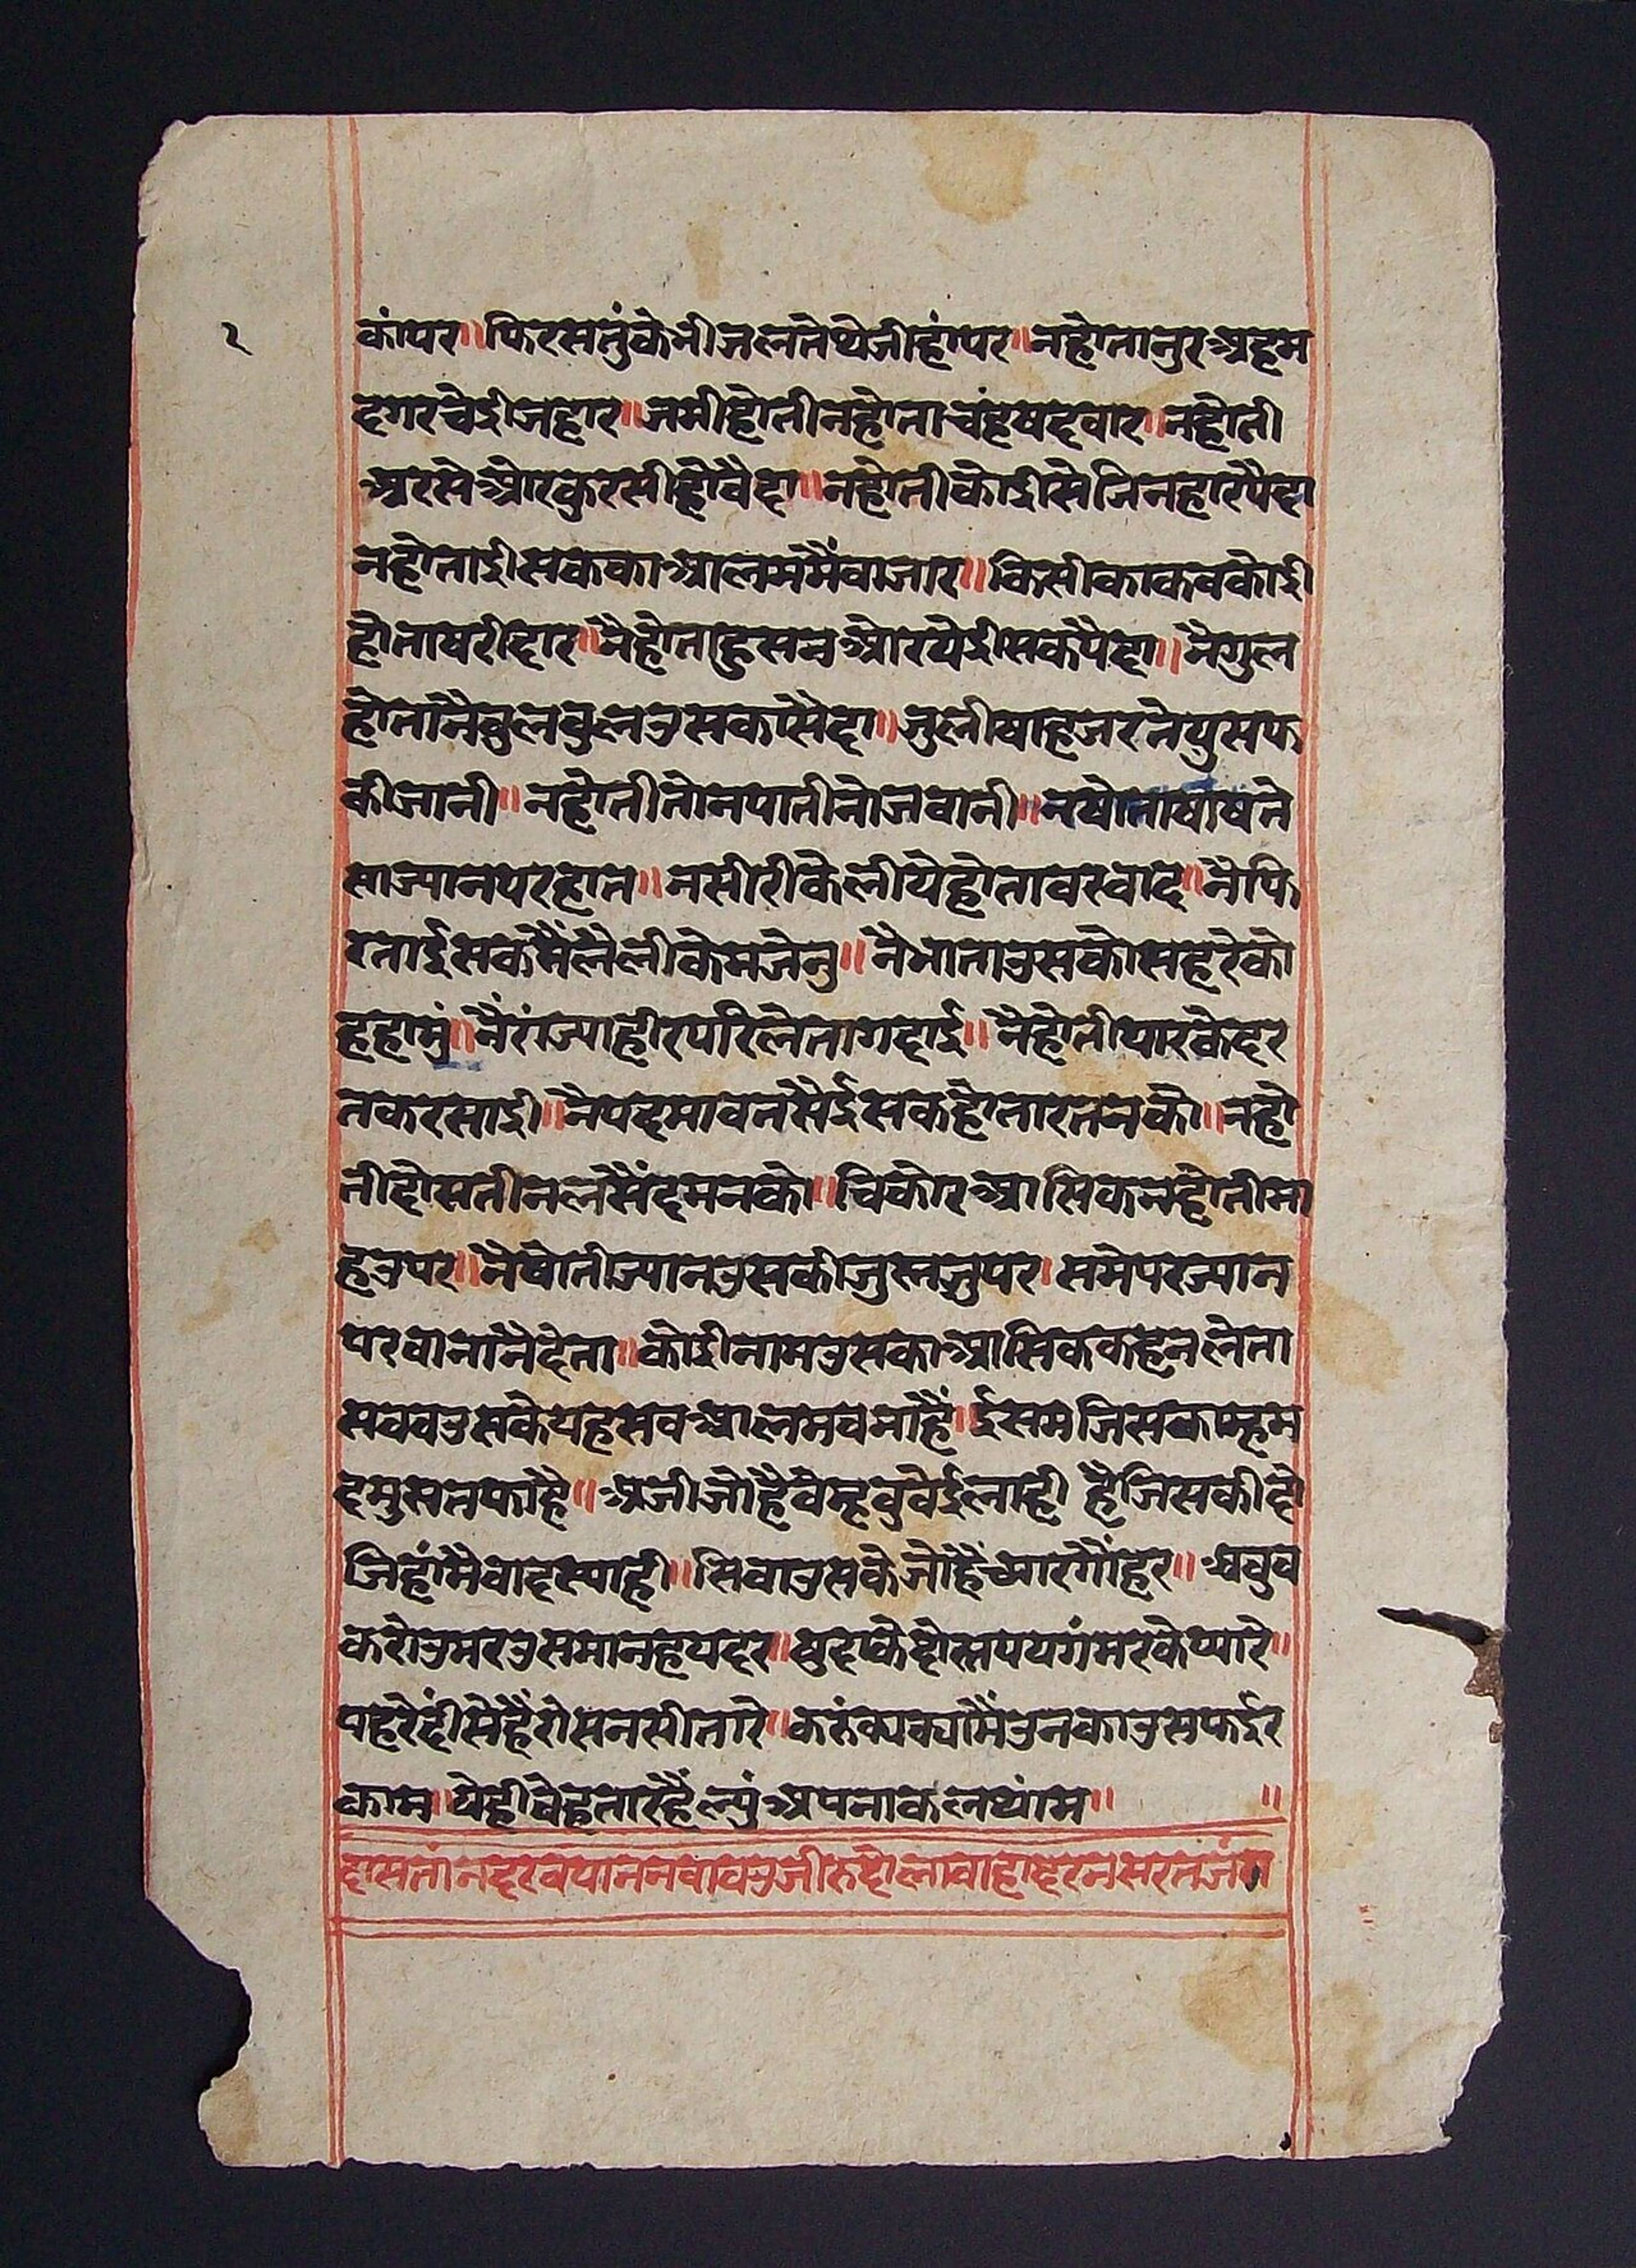 २
कांपर॥फिरसतुंकेभीजलतेथेजीहांपर॥नहोतानुरअहम
दगरचेईीजहार॥जमीहोतीनहोताचंहषदवार॥नहोती
अरसेओरकुरसीहोवैदा॥नहोतीकोईीसेजिनहारपैदा
नहोताईीसककाआलममैंवाजार॥किसीकाकवकोईी
होताषरीदार॥नैहोताहुसनओरयेईीसकपैदा॥नैगुल
होतानैवुलवुलउसकासैदा॥जुलीषाहजरतेयुसफ
कीजानी॥नहोतीतोनपातीनोजवानी॥नषोताषोषने
साज्यानपरहात॥नसीरीकेलीयेहोतावरवाद॥नैफि
रतार्इसकमैंलैलीकेमजेनु॥नैभाताउसकोसहरेको
हहामुं॥नैरांज्याहीरपरिलेतागदार्इ॥नैहोतीयारकेदर
तकरसाईी॥नैपदमावतसेर्इसकहोतारतनको॥नहो
तीहोसतीनलसैंदमनको॥चिकोरआसिकनहोतीमा
हउपर॥नैषोतीज्यानउसकीजुस्तजुपर।समेपरज्यान
परवानांनैदेता॥कोईीनामउसकाआसिककहनलेता
सववउसकेयहसवआलमवनाहैं।र्इसमजिसकामहम
दमुसतफाहै॥अजीजोहैवेमहवुवेर्इलाही हैजिसकीदो
जिहांमैवादस्याही॥सिवाउसकेजोहैंच्यारगोंहर॥अवुव
करोउमरउसमानहयदर॥षुदाकेदोस्तपयगंमरकेप्यारे॥
पहरेदींसेहैंरोसनसीतारे॥करुंक्याक्यामैंउनकाउसफर्इर
काम॥येहीवेहतारहैंल्युंअपनाकलथांम॥ ॥
दासतांनदरवयाननवाववजीरुदोलावाहादरनसरतजंग